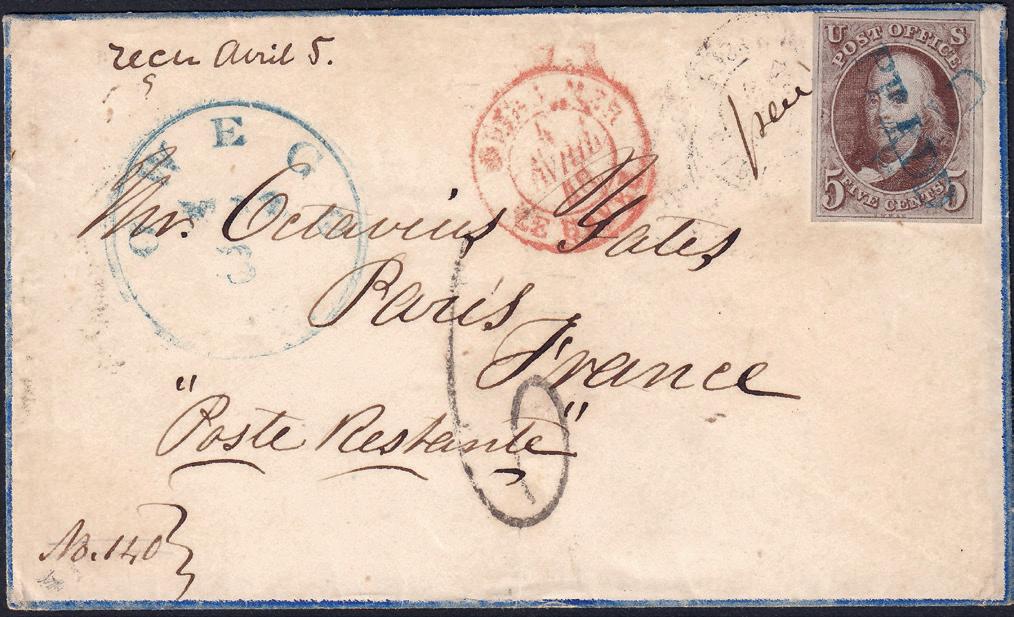 recu Avril 5.
U S
POST OFFICE
PAID
5 FIVE CENTS 5
OUTRE-MER
4
AVRIL
LE HAVRE
Mr. Octavius Yates
Paris
France
"Poste Restante"
No. 140